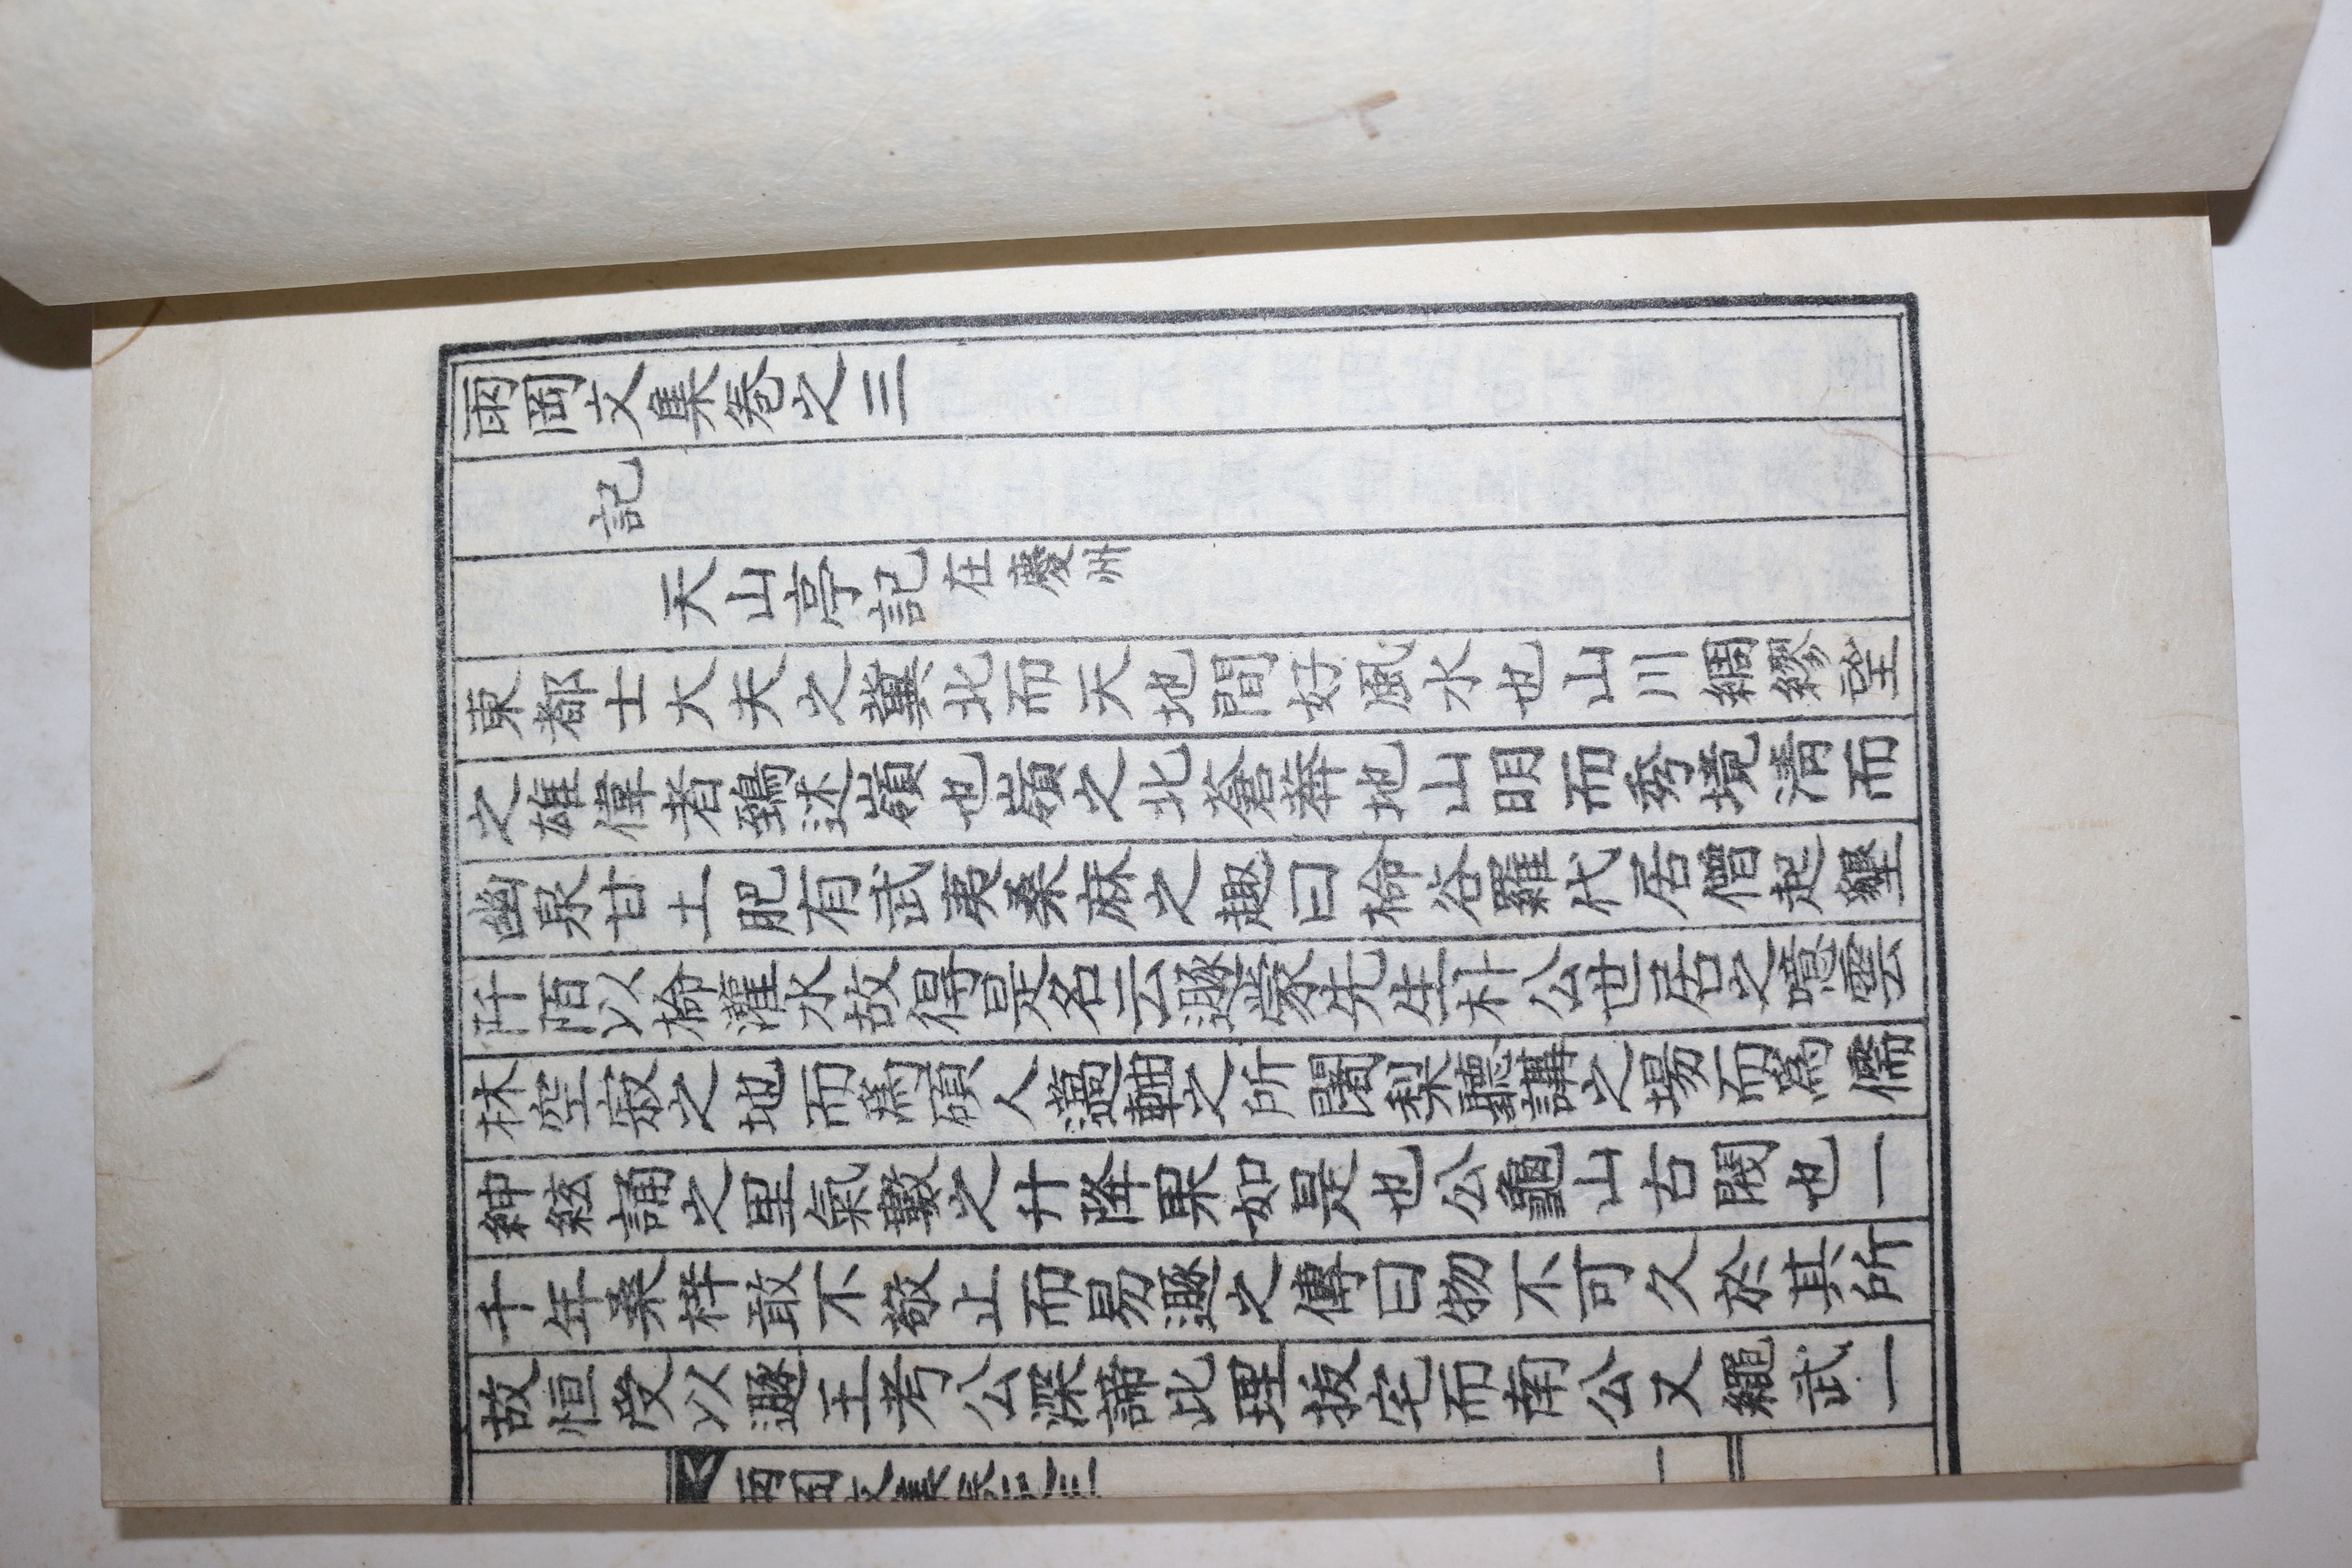 兩岡文集卷之三
記
天山亭記在慶州
東都士大夫之冀北而天地間好風水也山川綢繆望
之雄偉者鵄述嶺也嶺之北蒼莽地山明而秀境淸而
幽泉甘土肥有武夷桑麻之趣曰棆谷羅代居僧起墾
阡陌以棆灌水故得是名云遯蒙先生朴公世居之噫雲
林空寂之地而爲碩人薖軸之所闍梨聽講之場而爲儒
紳絃誦之里氣數之升降果如是也公龜山古閥也一
千年桑梓敢不敬止而易遯之傳曰物不可久於其所
故恒受以遯王考公深諦此理拔宅而南公又繩武一
兩岡文集卷之三
一